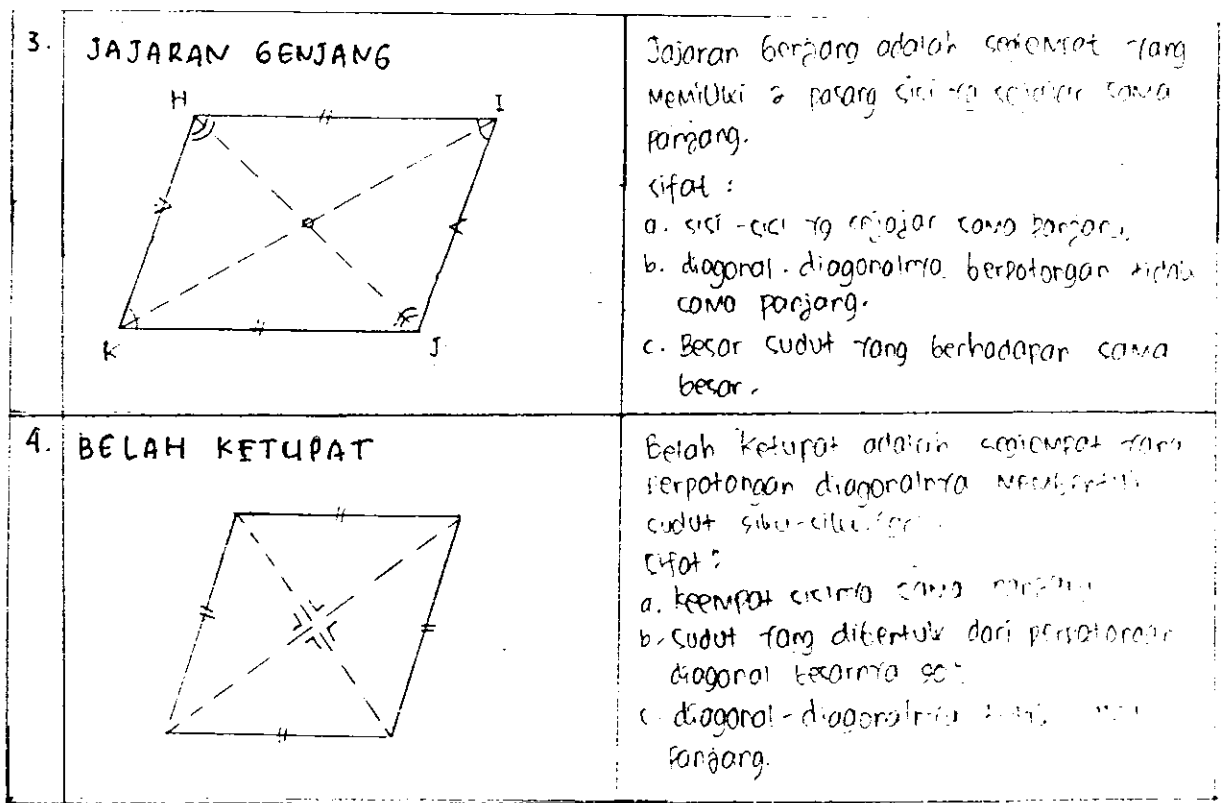 3. JAJARAN GENJANG
H
I
K
J
Jajaran Genjang adalah segiempat yang
memiliki 2 pasang sisi yg sejajar sama
panjang.
sifat :
a. sisi-sisi yg sejajar sama panjang
b. diagonal-diagonalnya berpotongan tidak
sama panjang.
c. Besar sudut yang berhadapan sama
besar.
4. BELAH KETUPAT
Belah Ketupat adalah segiempat yang
perpotongan diagonalnya membentuk
sudut siku-siku
sifat :
a. keempat sisinya sama panjang
b. sudut yang dibentuk dari perpotongan
diagonal besarnya 90°
c. diagonal-diagonalnya
panjang.